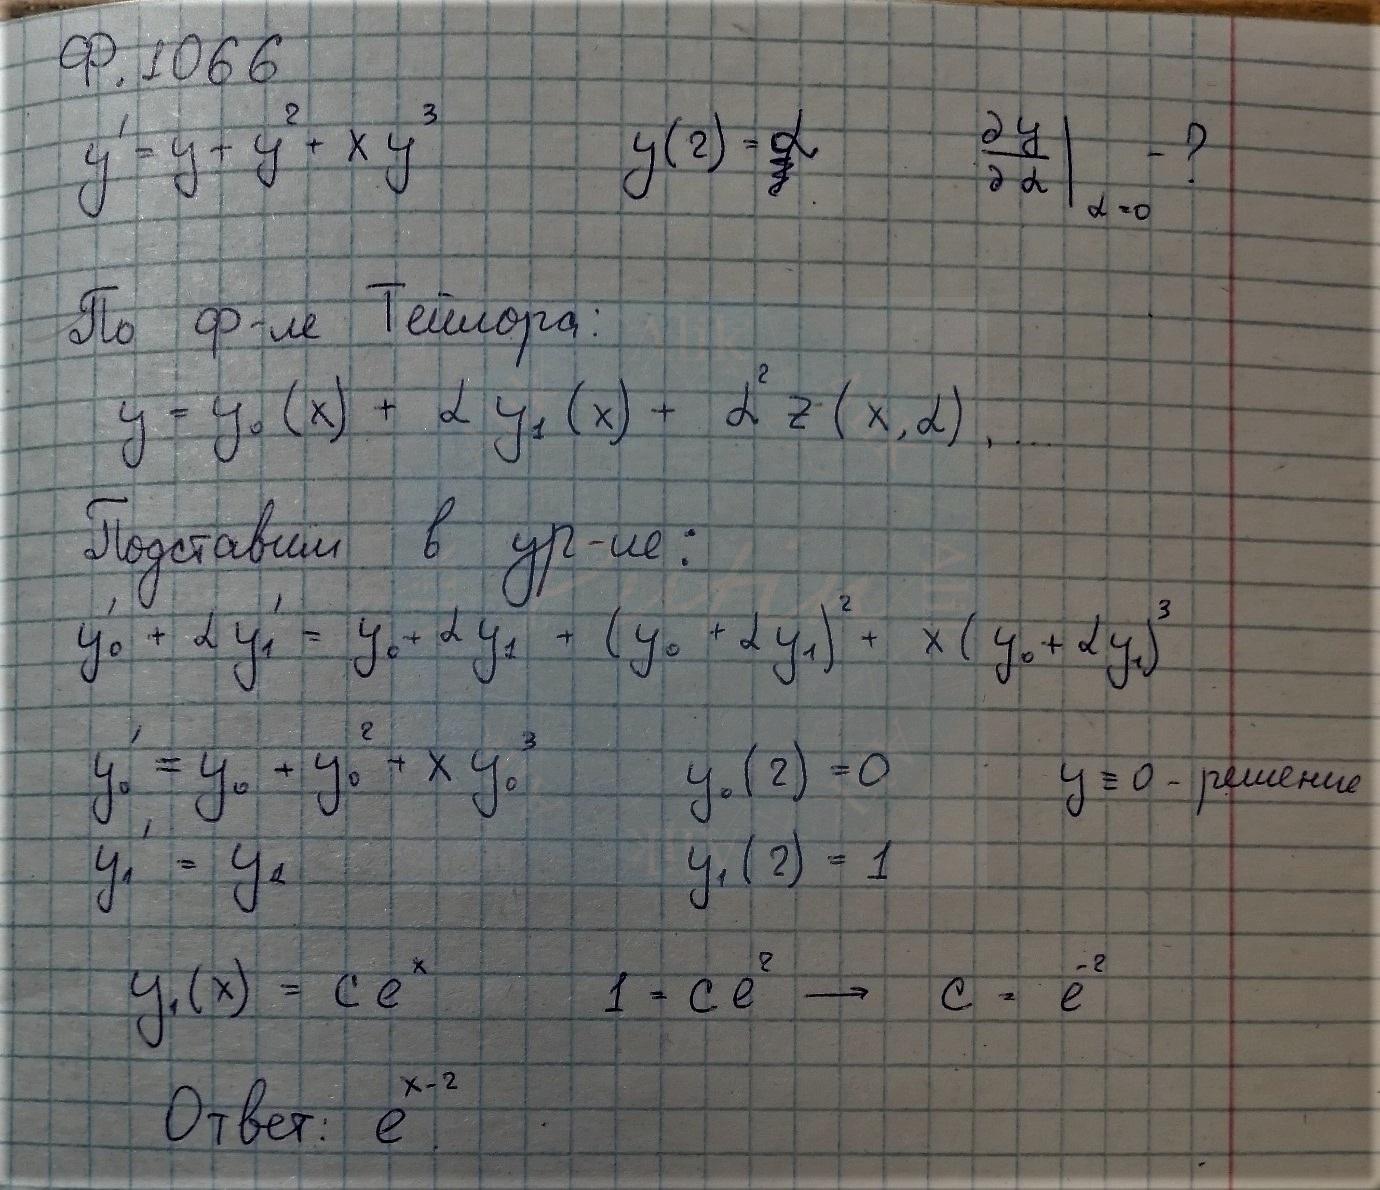 Ф. 1066
y' = y + y² + xy³ y(2) = α ∂y/∂α |α=0 - ?
По ф-ле Тейлора:
y = y₀(x) + αy₁(x) + α²z(x, α), ...
Подставим в ур-ие:
y₀' + αy₁' = y₀ + αy₁ + (y₀ + αy₁)² + x(y₀ + αy₁)³
y₀' = y₀ + y₀² + xy₀³ y₀(2) = 0 y ≡ 0 - решение
y₁' = y₁ y₁(2) = 1
y₁(x) = ceˣ 1 = ce² → c = e⁻²
Ответ: eˣ⁻².